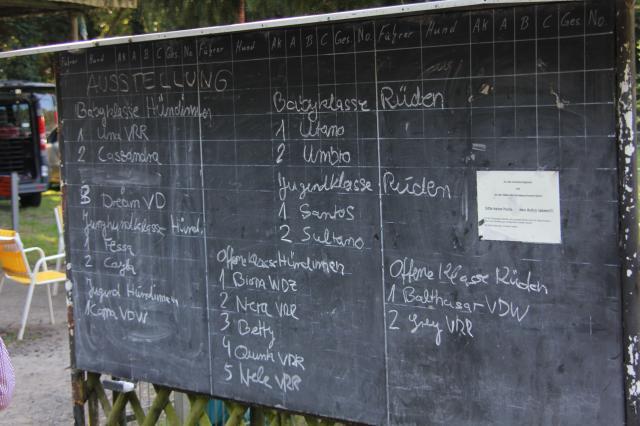 Führer Hund Ak A B C Ges. No Führer Hund Ak A B C Ges. No. Führer Hund Ak A B C Ges. No.
AUSSTELLUNG
Babyklasse Hündinnen
1 Una VRR
2 Cassandra
3 Dream VD
Junghundklasse Hünd.
1 Fessa
2 Cayla
Jugend Hündinnen
1 Kama VDW
Babyklasse Rüden
1 Utano
2 Umbro
Jugendklasse Rüden
1 Santos
2 Sultano
Offene Klasse Hündinnen
1 Biena WDZ
2 Nera VRR
3 Betty
4 Quinta VDR
5 Nele VRR
Offene Klasse Rüden
1 Balthasar VDW
2 Grey VRR